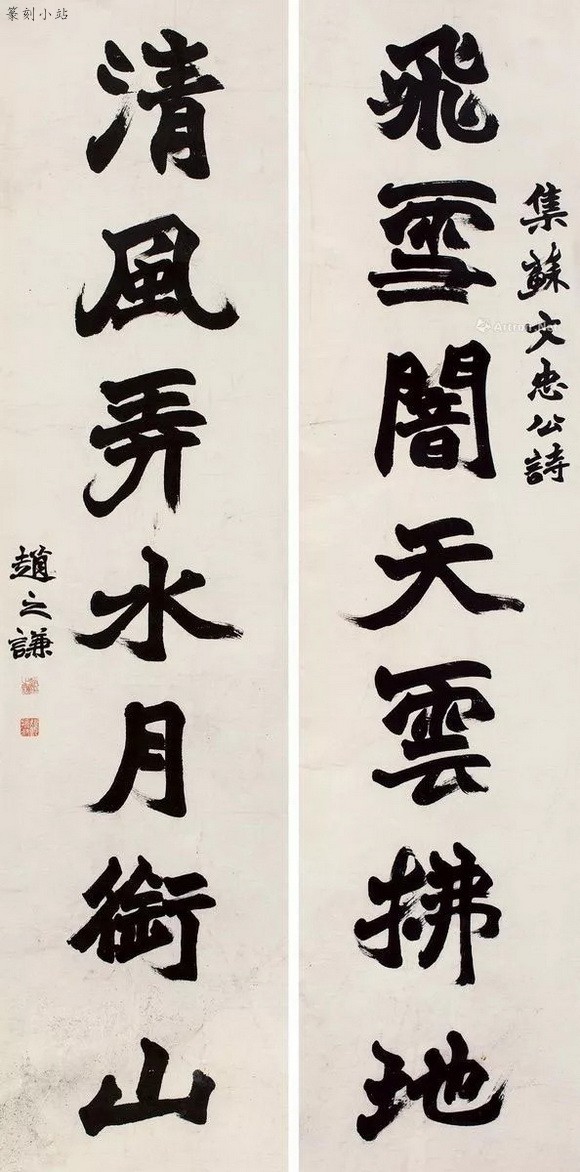 篆刻小站
集蘇文忠公詩
飛雪闇天雲拂地
清風弄水月銜山
趙之謙
Artron.Net